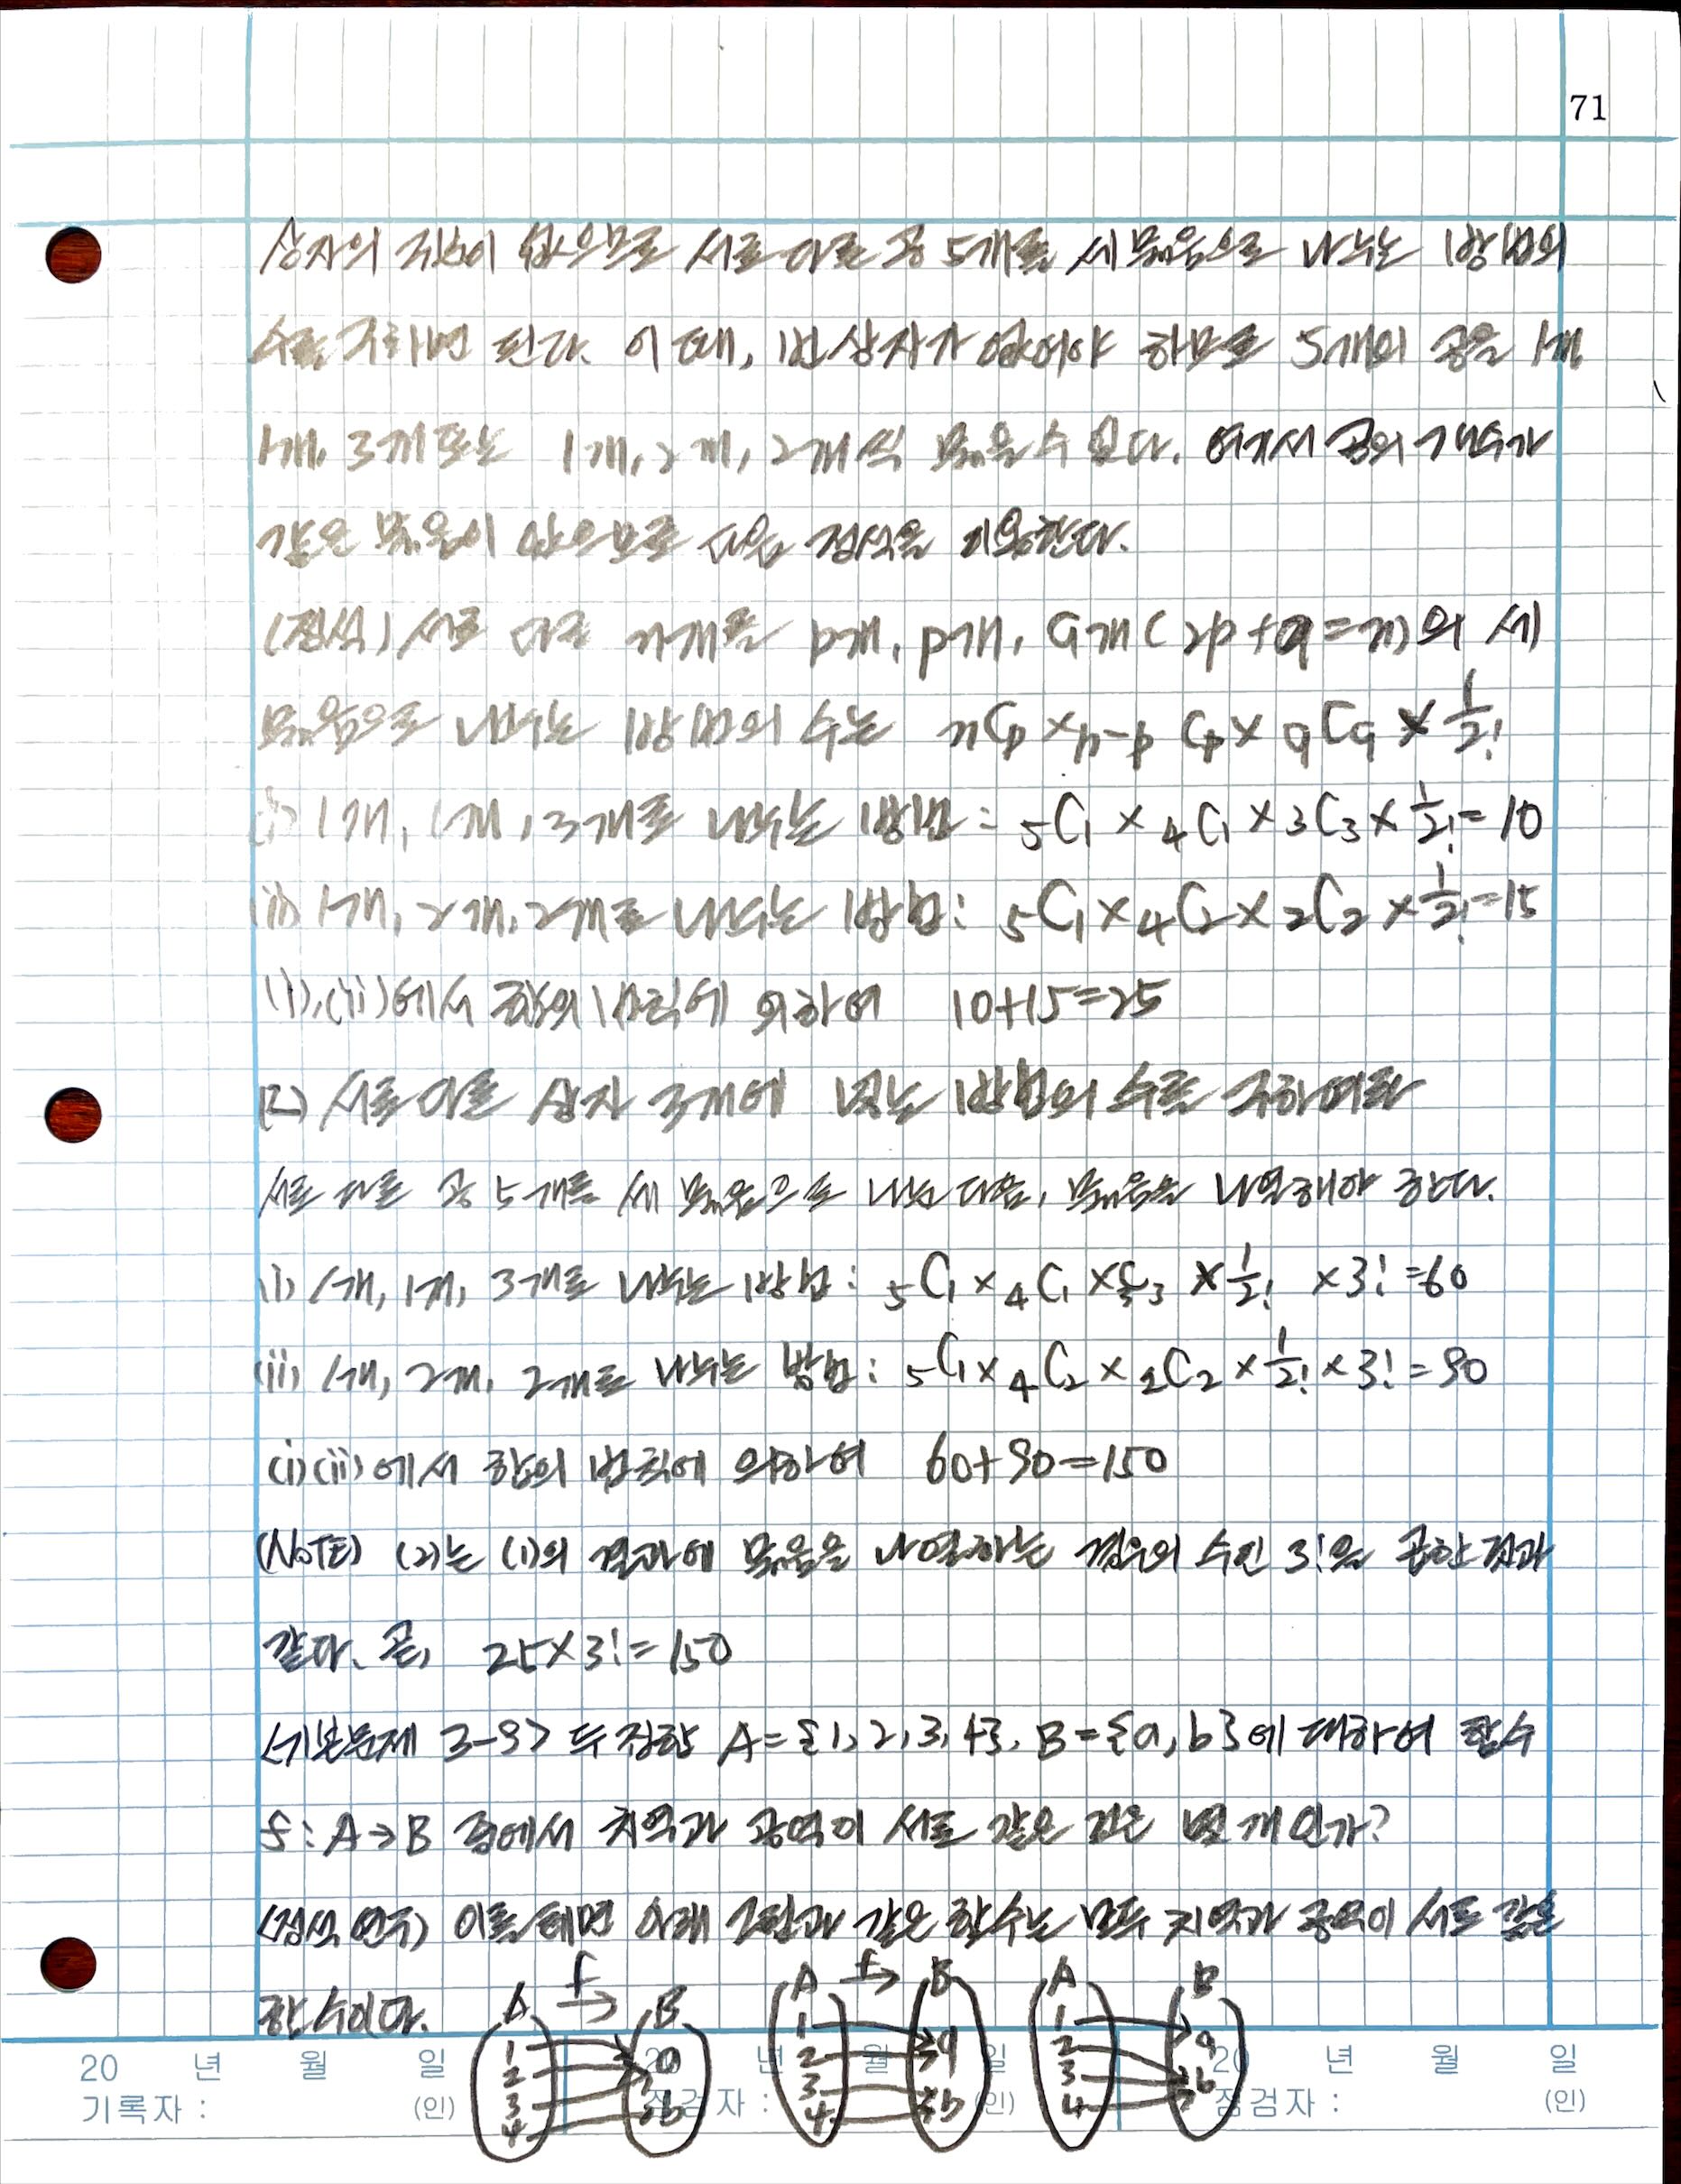 71
상자의 구분이 없으므로 서로 다른 공 5개를 세 묶음으로 나누는 방법의
수를 구하면 된다. 이 때, 빈 상자가 없어야 하므로 5개의 공을 1개,
1개, 3개 또는 1개, 2개, 2개씩 묶을 수 있다. 여기서 공의 개수가
같은 묶음이 있으므로 다음 정석을 이용한다.
(정석) 서로 다른 n개를 p개, p개, q개 (2p+q=n)의 세
묶음으로 나누는 방법의 수는 nCp × n-p Cp × qCq × 1/2!
(i) 1개, 1개, 3개로 나누는 방법: 5C1 × 4C1 × 3C3 × 1/2! = 10
(ii) 1개, 2개, 2개로 나누는 방법: 5C1 × 4C2 × 2C2 × 1/2! = 15
(i), (ii)에서 합의 법칙에 의하여 10+15=25
(2) 서로 다른 상자 3개에 넣는 방법의 수를 구하여라
서로 다른 공 5개를 세 묶음으로 나눈 다음, 묶음을 나열해야 한다.
(i) 1개, 1개, 3개로 나누는 방법: 5C1 × 4C1 × 3C3 × 1/2! × 3! = 60
(ii) 1개, 2개, 2개로 나누는 방법: 5C1 × 4C2 × 2C2 × 1/2! × 3! = 90
(i)(ii)에서 합의 법칙에 의하여 60+90=150
(NOTE) (2)는 (1)의 결과에 묶음을 나열하는 경우의 수인 3!을 곱한 결과
같다. 곧, 25×3!=150
<기본문제 3-9> 두 집합 A={1,2,3,4}, B={a,b}에 대하여 함수
f: A→B 중에서 치역과 공역이 서로 같은 것은 몇 개인가?
(정석연구) 이를테면 아래 그림과 같은 함수는 모두 치역과 공역이 서로 같은
함수이다.
A f → B A f → B A B
1 2 3 4 a b 1 2 3 4 a b 1 2 3 4 a b
20 년 월 일 20 년 월 일 20 년 월 일
기록자 : (인) 점검자 : (인) 점검자 : (인)